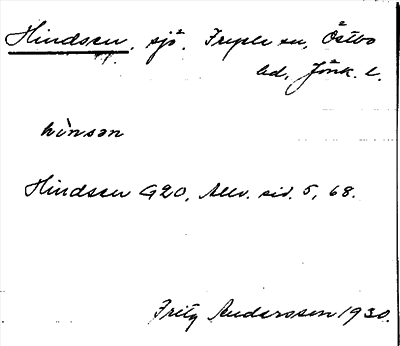 Hindsen, sjö, Tryple sn, Östbo
hd, Jönk. l.
hìnsən
Hindsen G20, Allv. sid. 5, 68.
Fritz Andersson 1930.